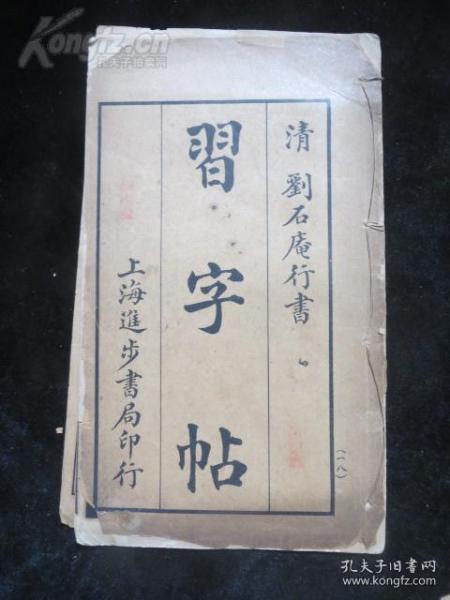 Kongfz.cn
孔夫子拍卖网
清 劉石庵行書
習字帖
上海進步書局印行
(一八)
孔夫子旧书网
www.kongfz.com